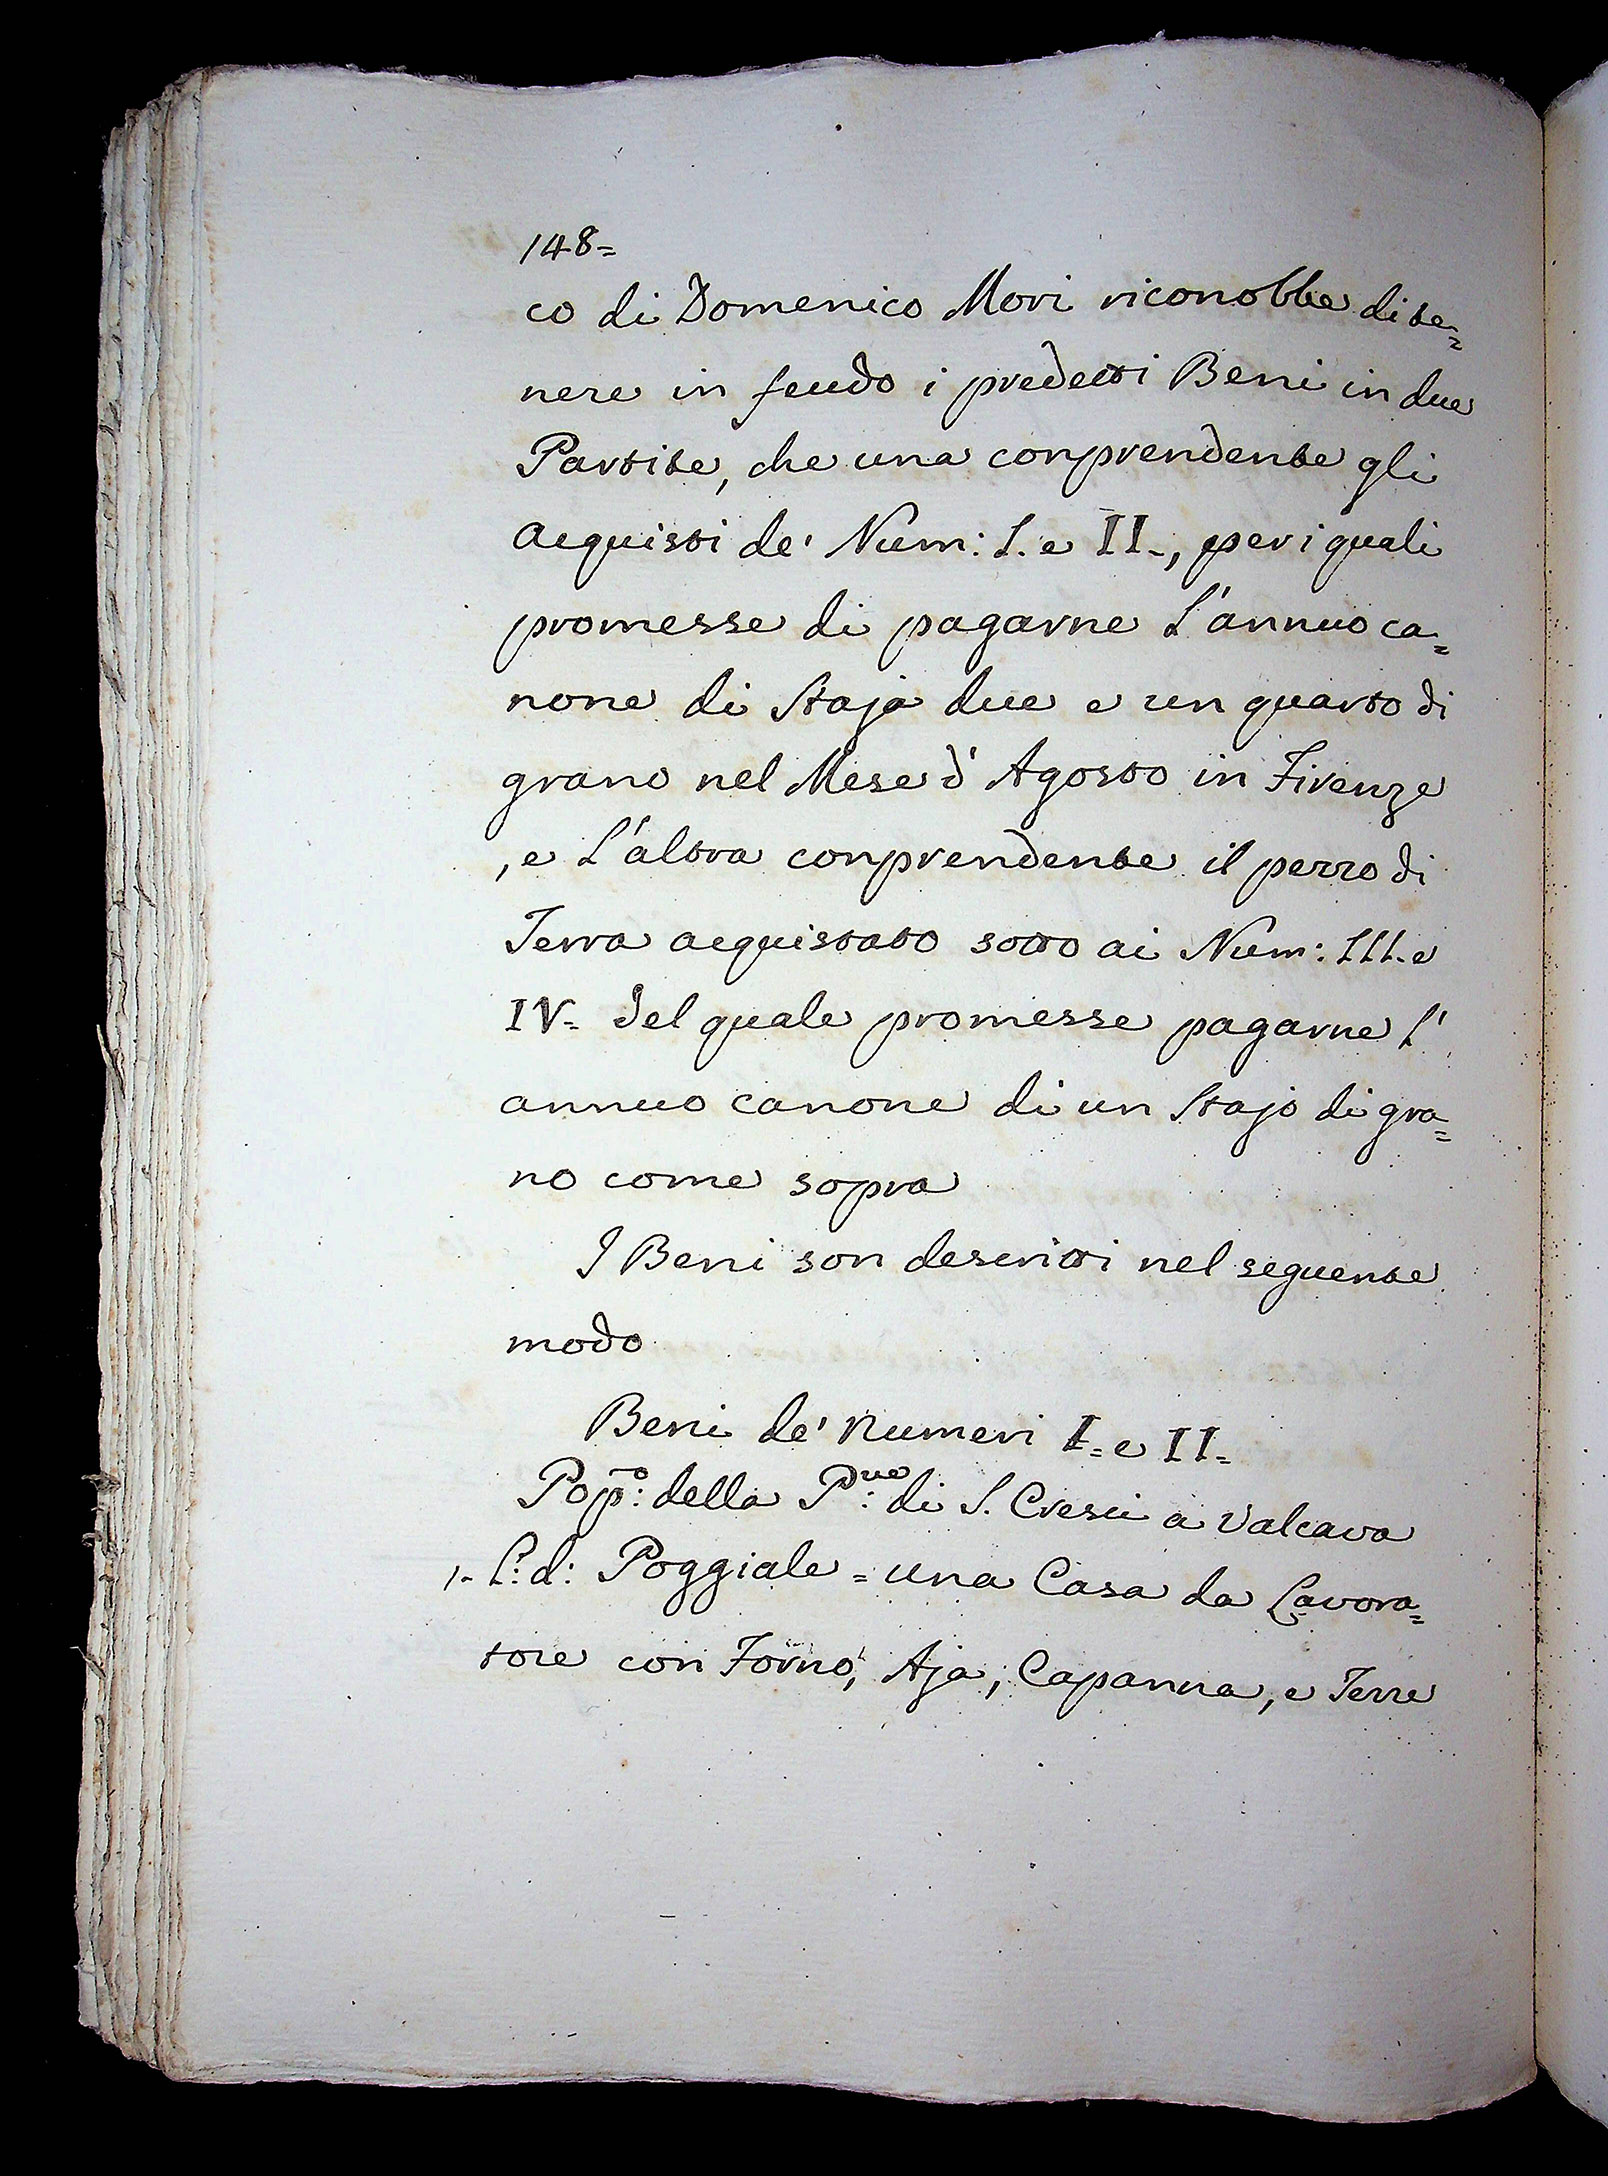 148=
co di Domenico Mori riconobbe di te=
nere in feudo i predetti Beni in due
Partite, che una conprendente gli
acquisti de' Num: I. e II-, per i quali
promesse di pagarne L'annuo ca=
none di Staja due e un quarto di
grano nel Mese d' Agosto in Firenze
, e L'altra conprendente il pezzo di
Terra acquistato sotto ai Num: III. e
IV= del quale promesse pagarne L'
annuo canone di un Stajo di gra=
no come sopra
I Beni son descritti nel seguente
modo
Beni de' Numeri I= e II=
Pop:o della P:ve di S. Cresci a Valcava
1- L: d: Poggiale = una Casa da Lavora=
tore con Forno, Aja, Capanna, e Terre